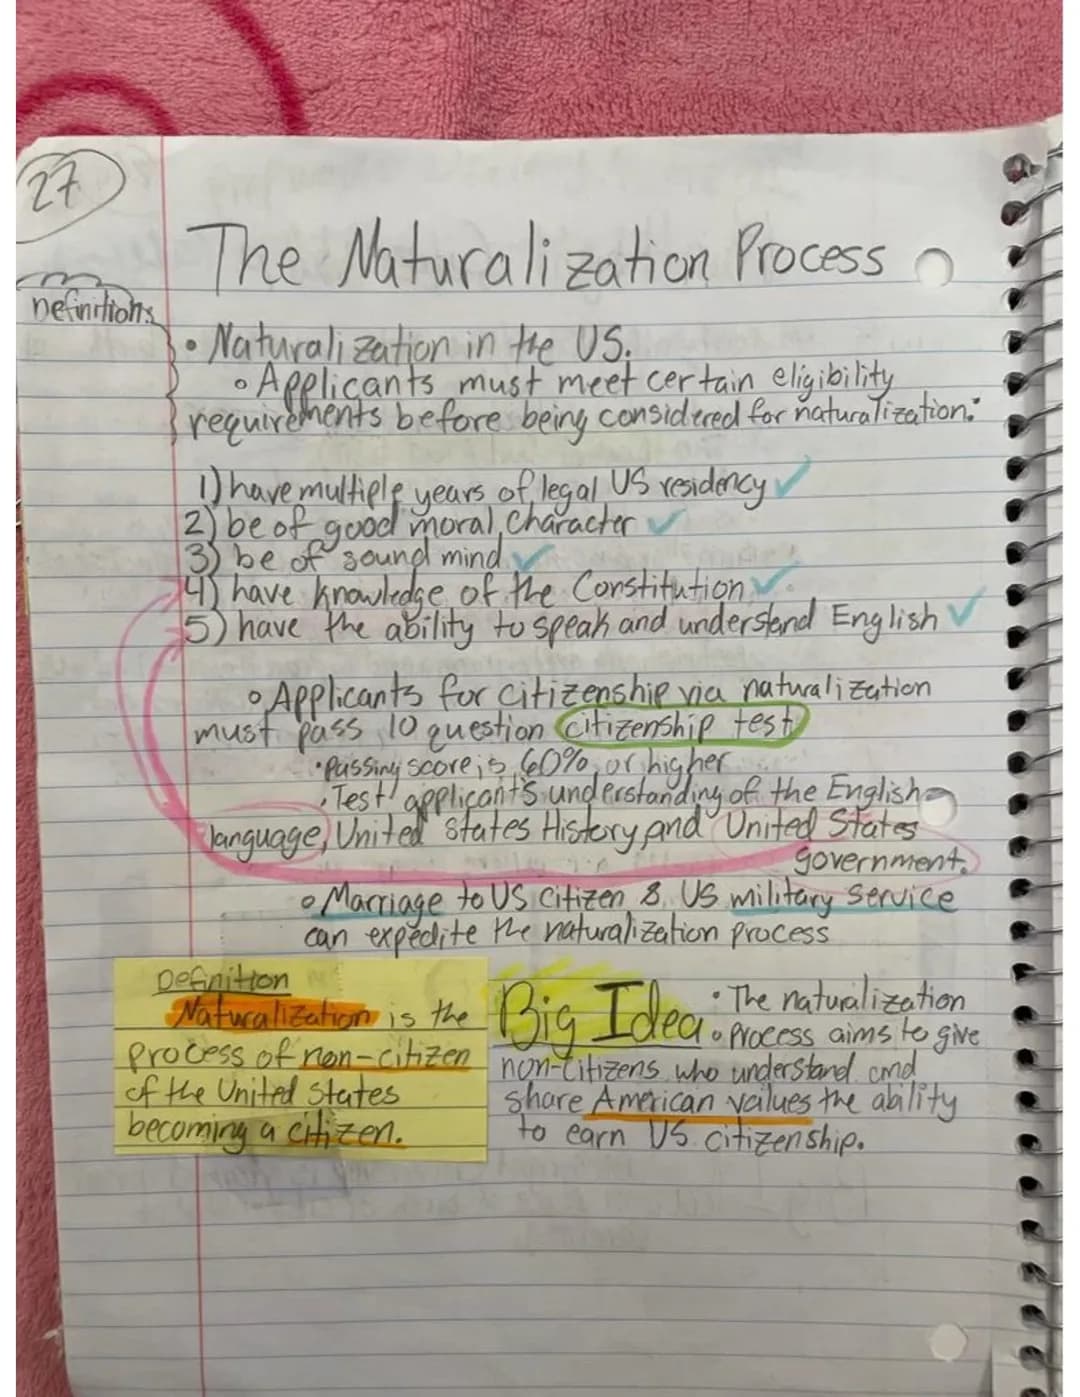 27
The Naturalization Process
Definitions
• Naturalization in the US.
◦ Applicants must meet certain eligibility
requirements before being considered for naturalization:
1) have multiple years of legal US residency ✓
2) be of good moral character ✓
3) be of sound mind ✓
4) have knowledge of the Constitution ✓
5) have the ability to speak and understand English ✓
◦ Applicants for citizenship via naturalization
must pass 10 question citizenship test
• Passing score is 60% or higher
• Test applicant's understanding of the English
language, United States History, and United States
government.
◦ Marriage to US Citizen & US military service
can expedite the naturalization process
Definition
Naturalization is the
process of non-citizen
of the United States
becoming a citizen.
Big Idea • The naturalization
• process aims to give
non-citizens who understand and
share American values the ability
to earn US citizenship.